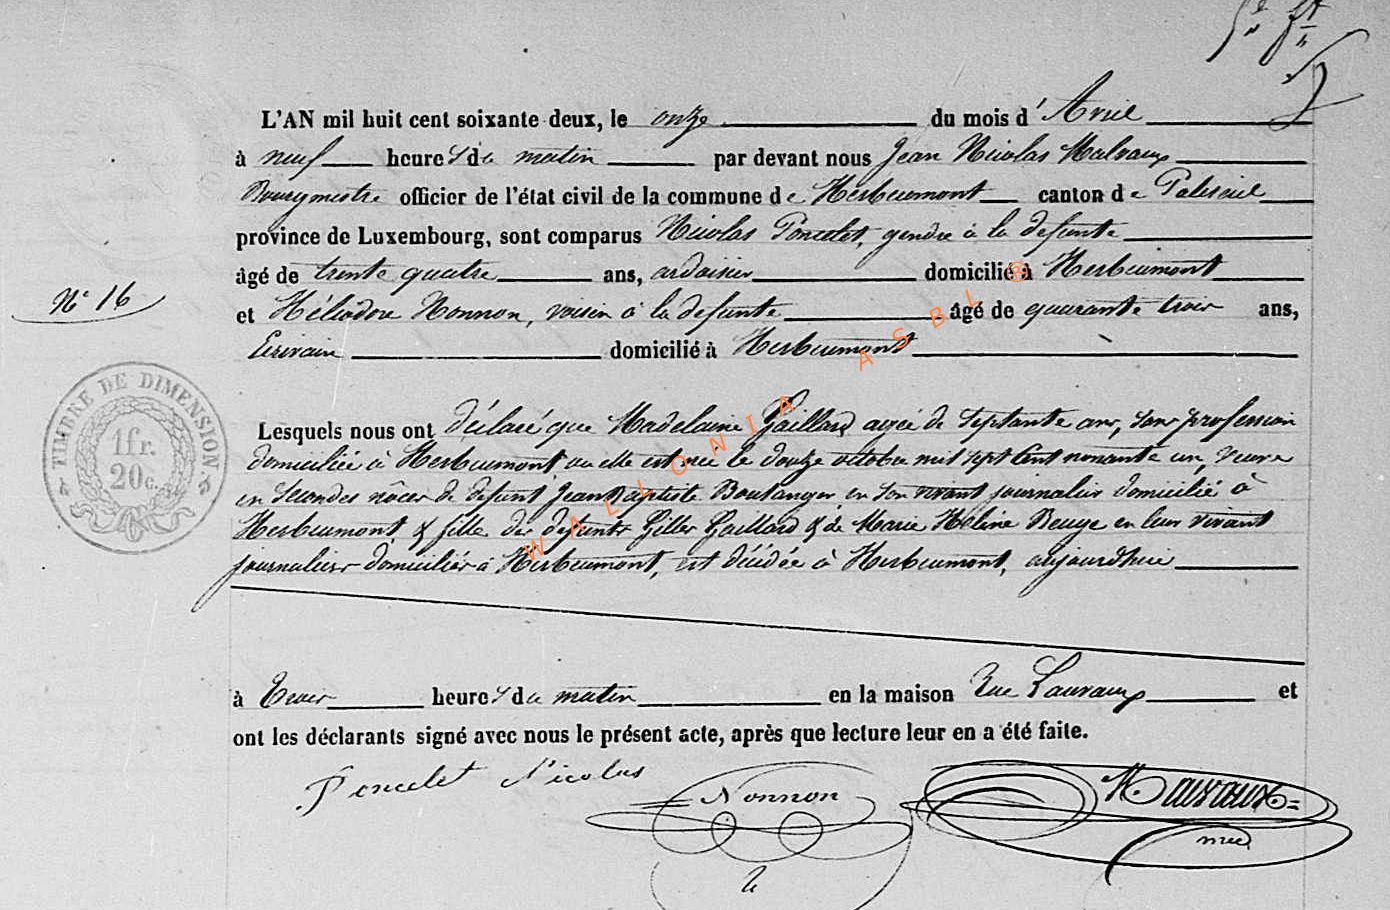 L'AN mil huit cent soixante deux, le onze du mois d'Avril
à neuf heures du matin par devant nous Jean Nicolas Malvaux
Bourgmestre officier de l'état civil de la commune de Herbeumont canton de Paliseul
province de Luxembourg, sont comparus Nicolas Poncelet, gendre à la defunte
âgé de trente quatre ans, ardoisier domicilié à Herbeumont
N° 16
et Héliodore Nonnon, voisin à la defunte âgé de quarante trois ans,
Ecrivain domicilié à Herbeumont
TIMBRE DE DIMENSION
1 fr.
20 c.
Lesquels nous ont déclaré que Madelaine Gaillard agée de septante ans, sans profession
domiciliée à Herbeumont ou elle est née le douze octobre mil sept cent nonante un, veuve
en secondes nôces de defunt Jean Baptiste Boulanger en son vivant journalier domicilié à
Herbeumont, & fille des defunts Gilles Gaillard & de Marie Héline Beuge en leur vivant
journaliers domiciliés à Herbeumont, est décédée à Herbeumont, aujourdhui
à trois heures du matin en la maison Rue Lauvaux et
ont les déclarants signé avec nous le présent acte, après que lecture leur en a été faite.
Poncelet Nicolas
Nonnon
WALLONIA ASBL